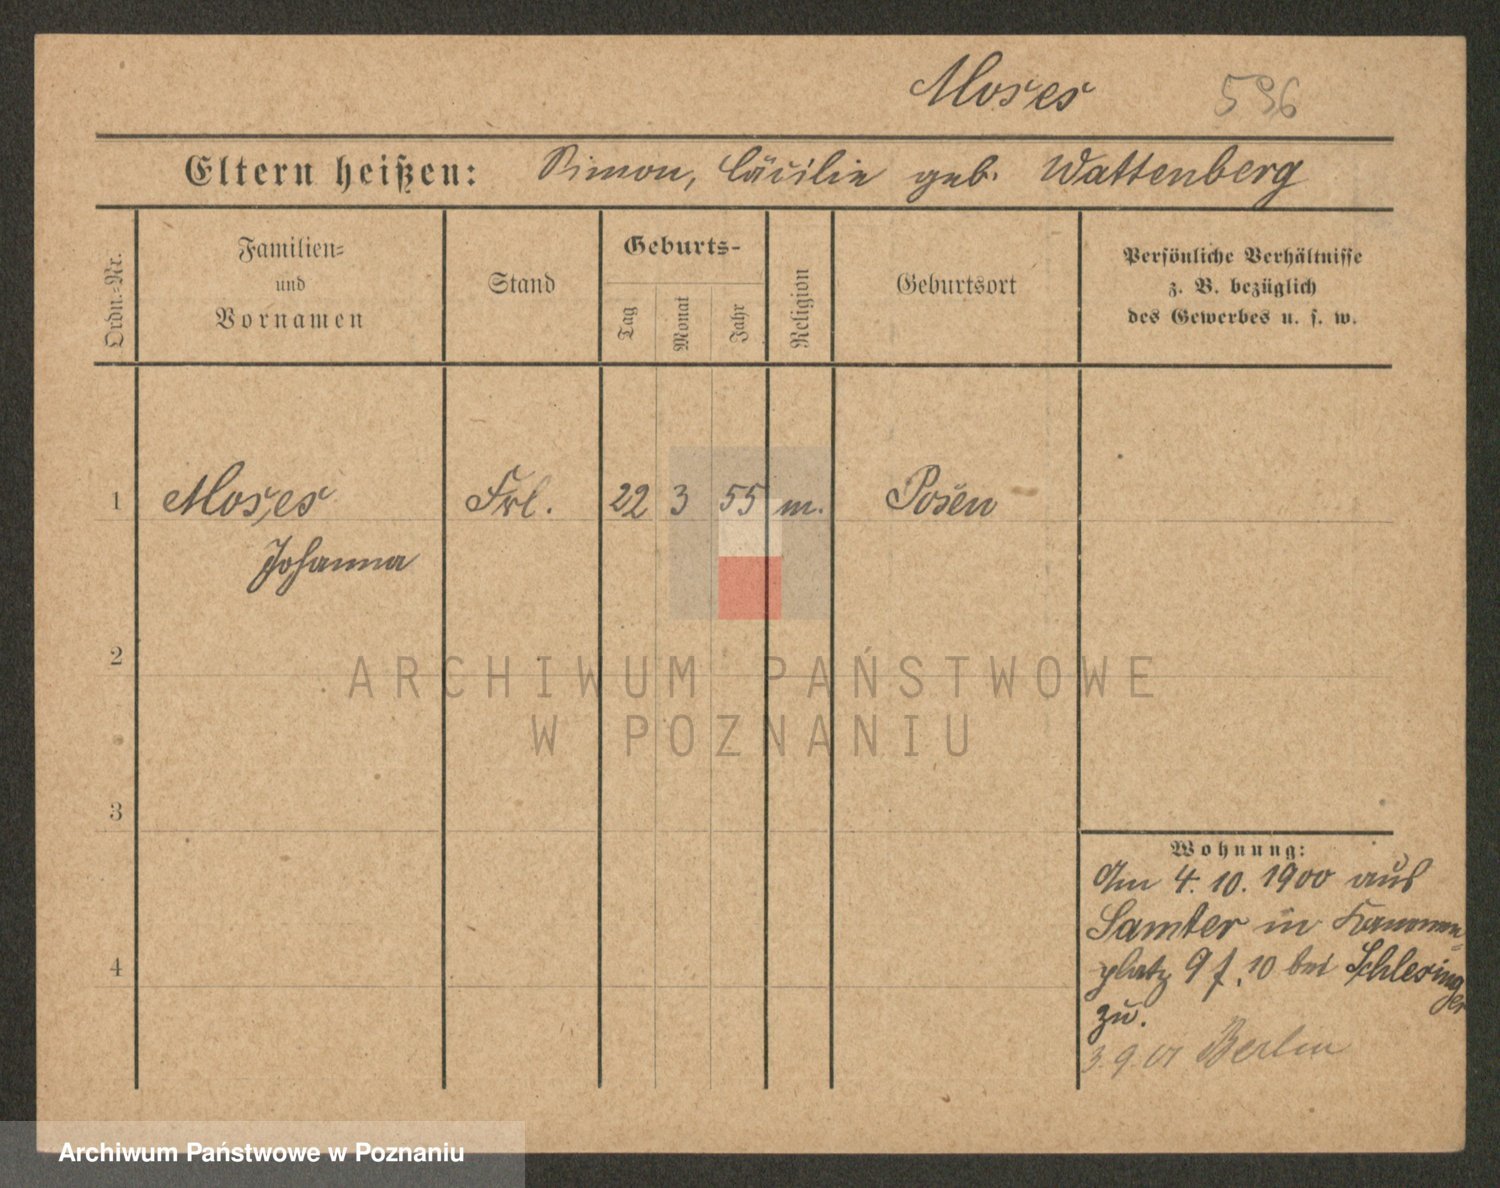 Moses 596
Eltern heißen: Simon, Cäcilie geb. Wattenberg
Ordn.-Nr.
Familien-
und
Vornamen
Stand
Geburts-
Tag
Monat
Jahr
Religion
Geburtsort
Persönliche Verhältnisse
z. B. bezüglich
des Gewerbes u. s. w.
1 Moses Frl. 22 3 55 m. Posen
Johanna
2
ARCHIWUM PAŃSTWOWE
W POZNANIU
3
Wohnung:
Am 4. 10. 1900 aus
Samter in Kanonen-
platz 9 f. 10 bei Schlesinger
zu.
4
3. 9. 01 Berlin
Archiwum Państwowe w Poznaniu